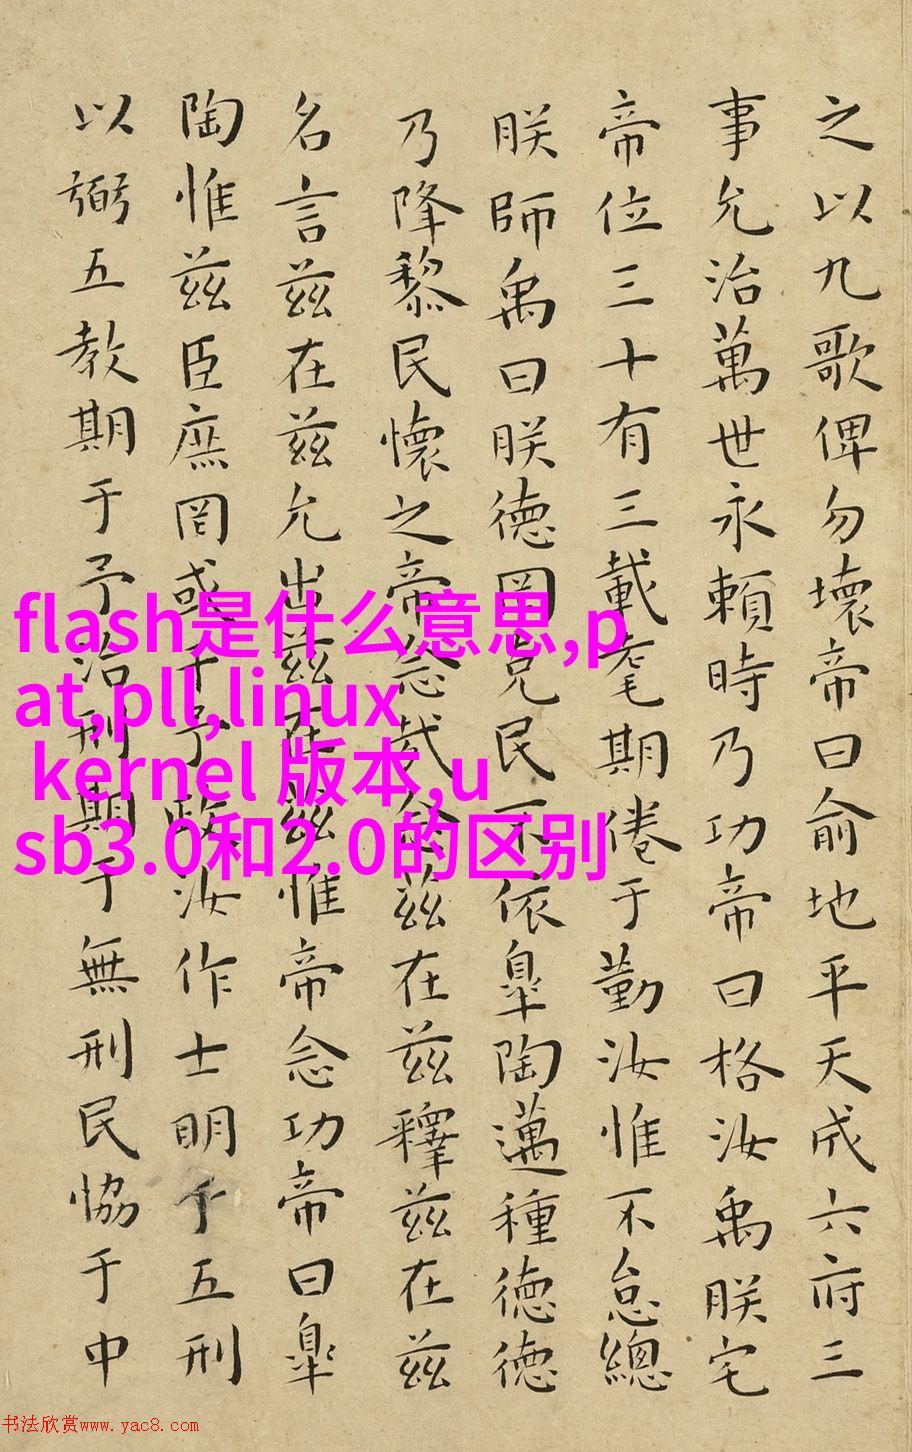 之以九歌俾勿壞帝曰俞地平天成六府三
事允治萬世永賴時乃功帝曰格汝禹朕宅
帝位三十有三載耄期倦于勤汝惟不怠總
朕師禹曰朕德罔克民不依皐陶邁種德德
乃降黎民懷之帝念哉念兹在兹釋兹在兹
名言兹在兹允出兹在兹惟帝念功帝曰皐
陶惟兹臣庶罔或干予政汝作士明于五刑
以弼五教期于予治刑期于無刑民協于中
flash是什么意思,p
at,pll,linux
kernel 版本,u
sb3.0和2.0的区别
书法欣赏www.yac8.com